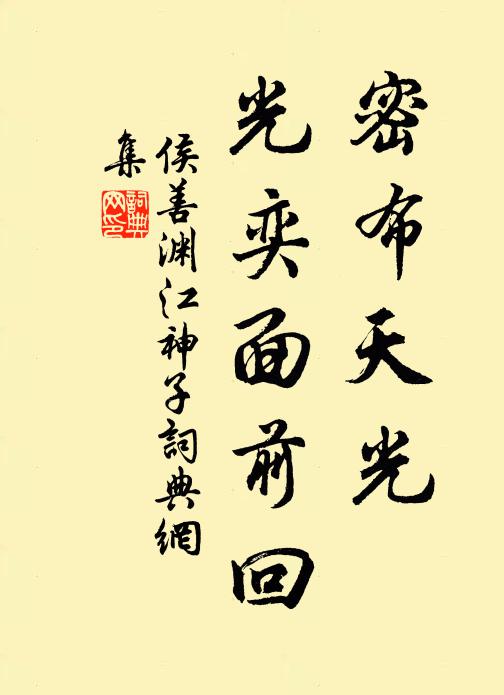 密布天光
光奕面前回
侯善渊江神子詞典網
集
詞典網印